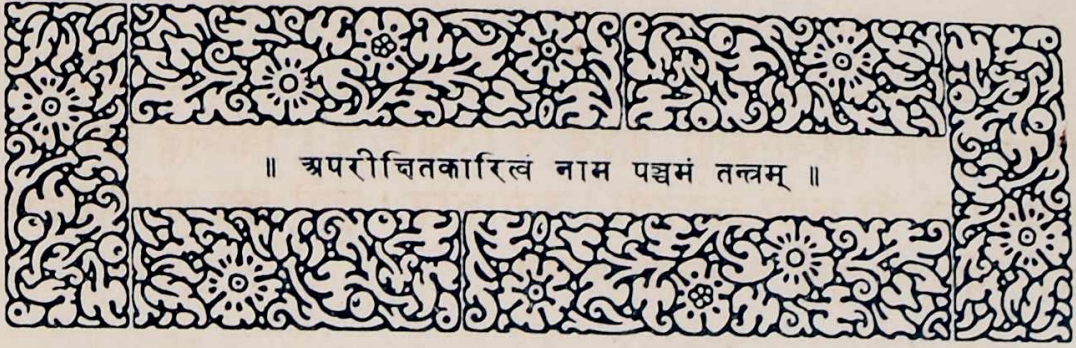 ॥ अपरीक्षितकारित्वं नाम पञ्चमं तन्त्रम् ॥